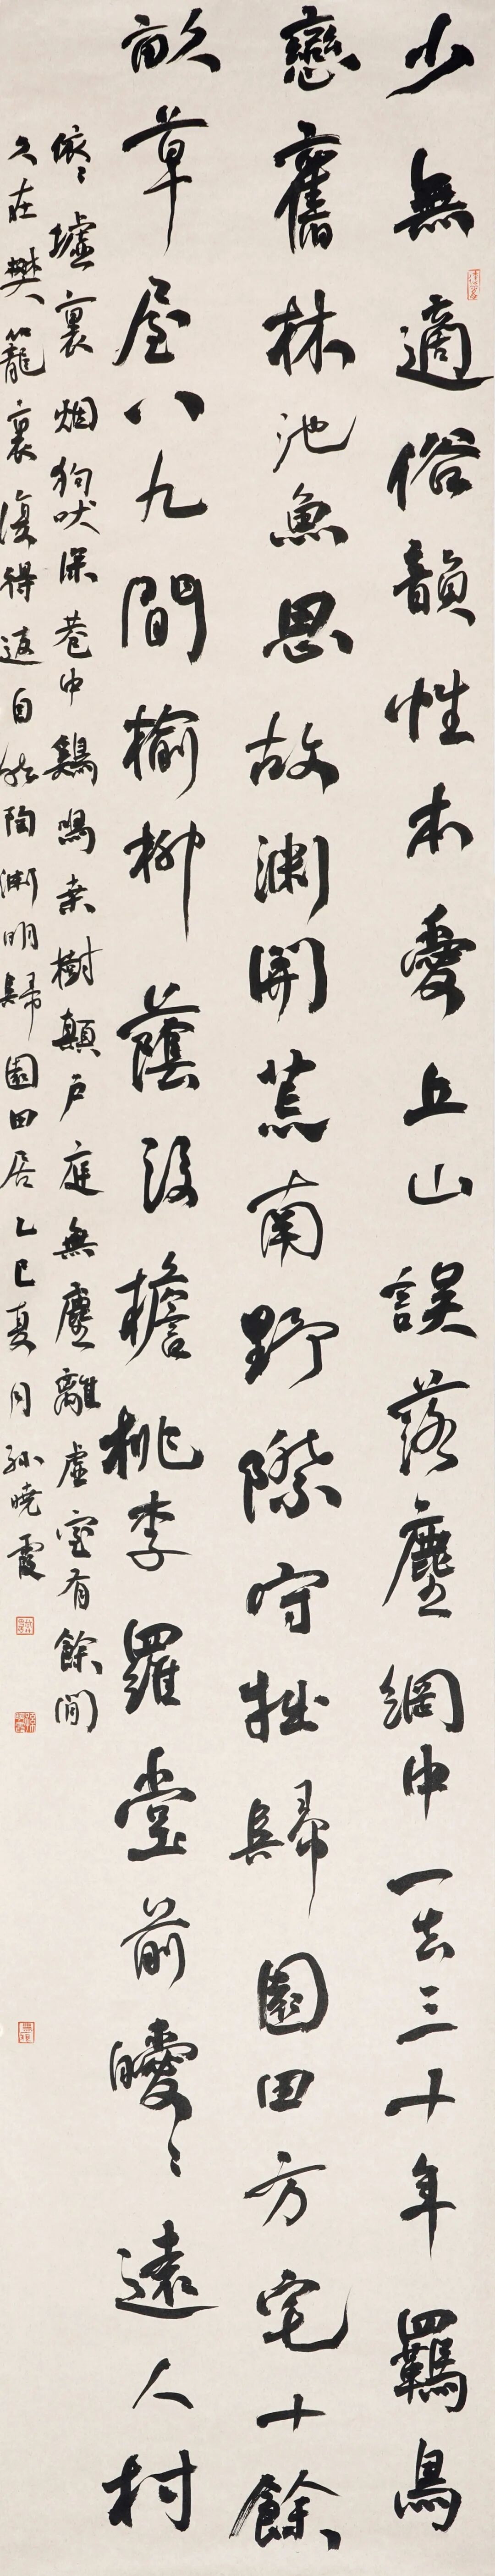 少無適俗韻性本愛丘山誤落塵網中一去三十年羈鳥
戀舊林池魚思故淵開荒南野際守拙歸園田方宅十餘
畝草屋八九間榆柳蔭後檐桃李羅堂前曖〻遠人村
依〻墟裏烟狗吠深巷中鷄鳴桑樹顛戶庭無塵離虛室有餘閒
久在樊籠裏復得返自然陶淵明歸園田居乙巳夏月孫曉霞